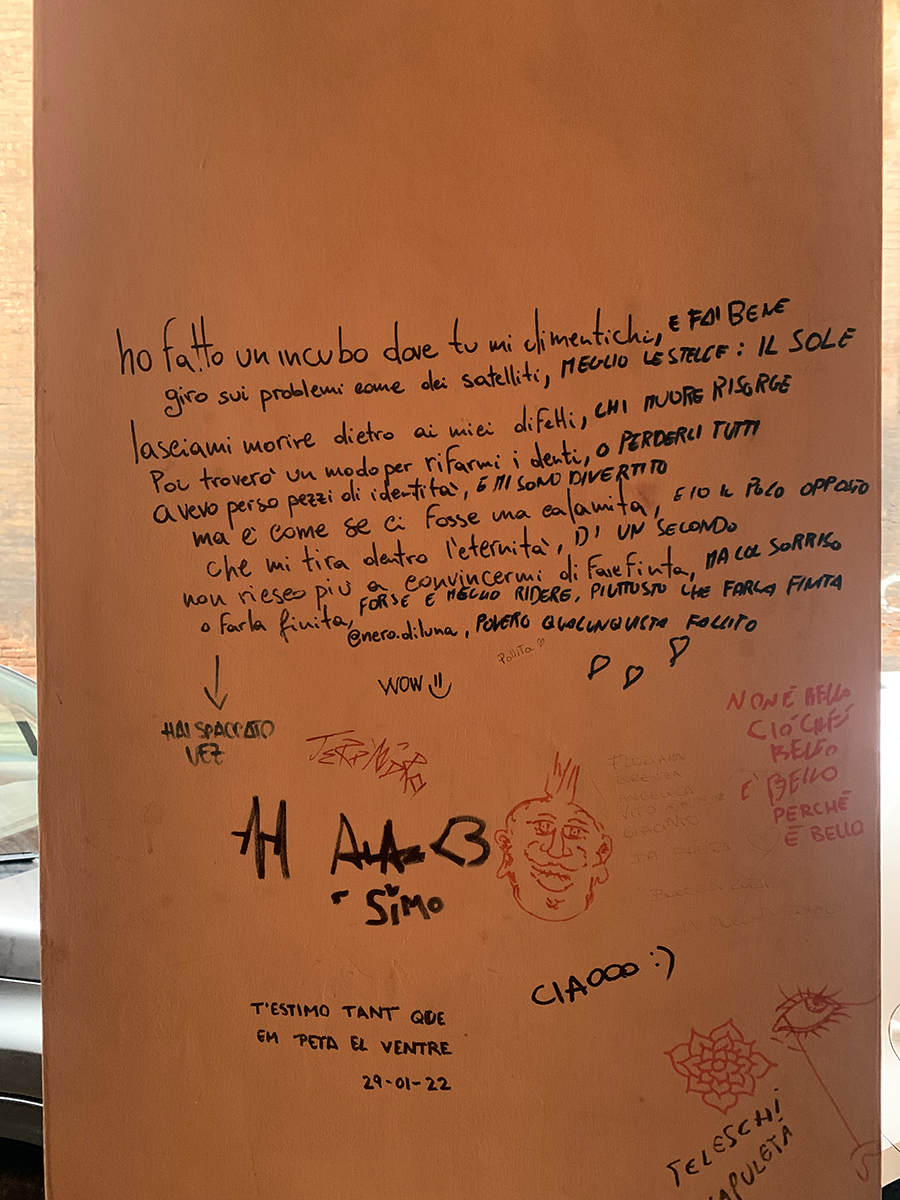 ho fatto un incubo dove tu mi dimentichi, E FAI BENE
giro sui problemi come dei satelliti, MEGLIO LE STELLE: IL SOLE
lasciami morire dietro ai miei difetti, CHI MUORE RISORGE
Poi troverò un modo per rifarmi i denti, O PERDERLI TUTTI
avevo perso pezzi di identità, E MI SONO DIVERTITO
ma è come se ci fosse una calamita, E IO IL POLO OPPOSTO
che mi tira dentro l'eternità, DI UN SECONDO
non riesco più a convincermi di fare finta, MA COL SORRISO
o farla finita, FORSE È MEGLIO RIDERE, PIUTTOSTO CHE FARLA FINITA
@nero.diluna, POVERO QUALUNQUISTA FALLITO
Pollita
WOW
HAI SPACCATO
VEZ
NON È BELLO
CIÒ CHE È
BELLO
È BELLO
PERCHÉ
È BELLO
SIMO
CIAOOO :)
T'ESTIMO TANT QUE
EM PETA EL VENTRE
29-01-22
TELESCHI